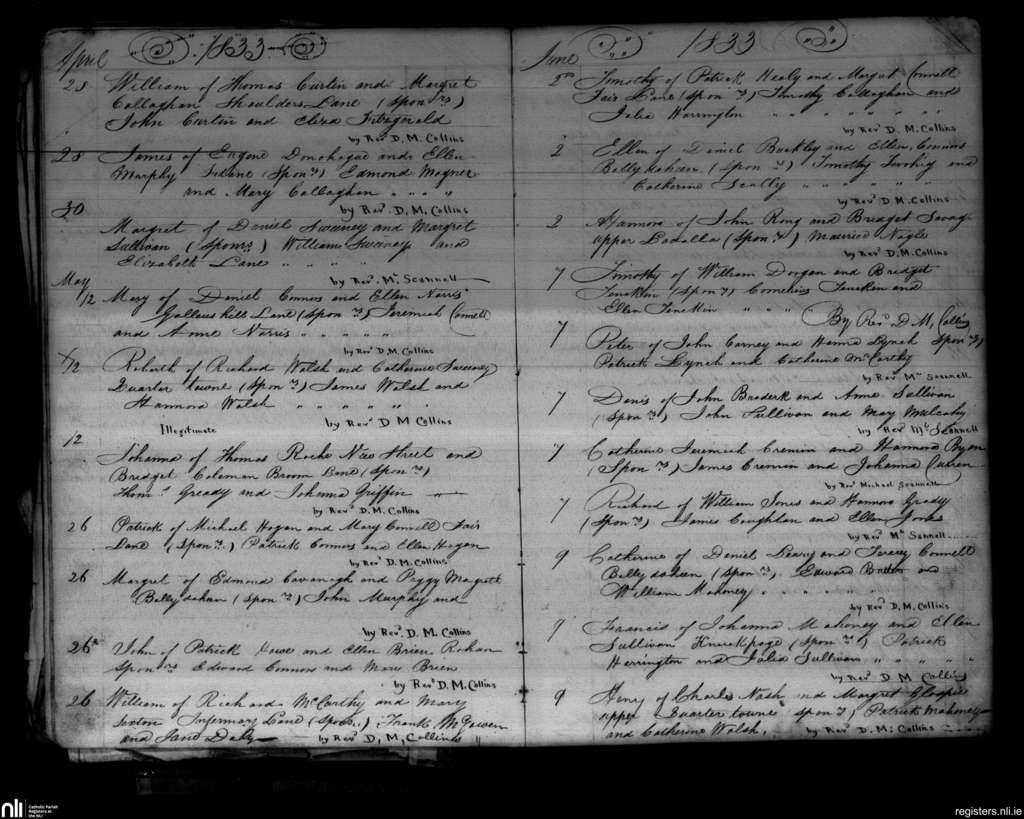 April 1833
28 William of Thomas Curtin and Margret
Callaghan Shoulders Lane (Spon rs)
John Curtin and Eliza Fitzgerald
by Revd D. M. Collins
28 James of Eugene Donohogue and Ellen
Murphy (Spon rs) Edmond Wogner
and Mary Callaghan " " " "
by Revd. D, M, Collins
30
Margret of Daniel Sweeney and Margret
Sullivan (Spon rs) William Sweeney and
Elizabeth Lane " " " "
by Revd. Ml. Scannell
May
12 Mary of Daniel Connors and Ellen Norris
Gallows hill Lane (Spon rs) Jeremiah Connell
and Anne Norris " " " " "
by Revd. D, M, Collins
12 of Richard Walsh and Catherine Sweeney
Quarter towne (Spon rs) James Walsh and
Hannora Walsh " " " " "
Illegitimate by Revd D M Collins
12
Johanna of Thomas Roche New Street and
Bridget Coleman Broom Lane (Spon rs)
Thoms. Gready and Johanna Griffin
by Revd. D. M. Collins
26 Patrick of Michael Hogan and Mary Connell Fair
Lane (Spon rs.) Patrick Connors and Ellen Hogan
by Revd. D. M. Collins
26 Margret of Edmond Cavanagh and Peggy Magrath
Ballydahan (Spon rs) John Murphy and
by Revd. D. M. Collins
26th John of Patrick and Ellen Brien
Spon rs Edward Connors and Mary Brien
by Revd D, M. Collins
26 William of Richard McCarthy and Mary
Sexton Infirmary Lane (Spon rs.) Frank
and Jane Daly by Revd D, M, Collins "
June 1833
2nd Timothy of Patrick Healy and Margret Connell
Fair Lane (Spon rs) Timothy Callaghan and
Julia Harrington " " " " " "
by Revd D. M. Collins
2 Ellen of Daniel Buckley and Ellen Connors
Ballydahan (Spon rs) Timothy and
Catherine Scully " " " " "
by Revd D. M. Collins
2 Hannora of John Ring and Bridget
upper (Spon rs) Maurice Nagle
by Revd D. M. Collins
7 Timothy of William Dorgan and Bridget
(Spon rs) Cornelius and
Ellen " " " " By Revd D M, Collins
7 Peter of John Carney and Hanna Lynch Spon rs)
Patrick Lynch and Catherine McCarthy
by Revd Ml Scannell
7 Denis of John Broderk and Anne Sullivan
(Spon rs) John Sullivan and Mary Mulcahy
by Revd Ml Scannell
7 Catherine Jeremiah Cremin and Hannora Ryan
(Spon rs) James Cremin and Johanna Curren
by Revd Michael Scannell
7 Richard of William Jones and Hannora Grady
(Spon rs) James Coughlan and Ellen Jones
by Revd Ml Sannell
9 Catherine of Daniel Leary and Connell
Ballydahan (Spon rs) Edward and
William Mahoney " " " " "
by Revd D, M, Collins
9 Francis of Johanna Mahoney and Ellen
Sullivan (Spon rs) Patrick
Herrington and Julia Sullivan " " " " "
by Revd D M Collins
9 Henry of Charles Nash and Margret
upper Quarter towne spon rs) Patrick Mahoney
and Catherine Walsh. by Revd D. M. Collins
nli Catholic Parish
Registers at
the NLI
registers.nli.ie